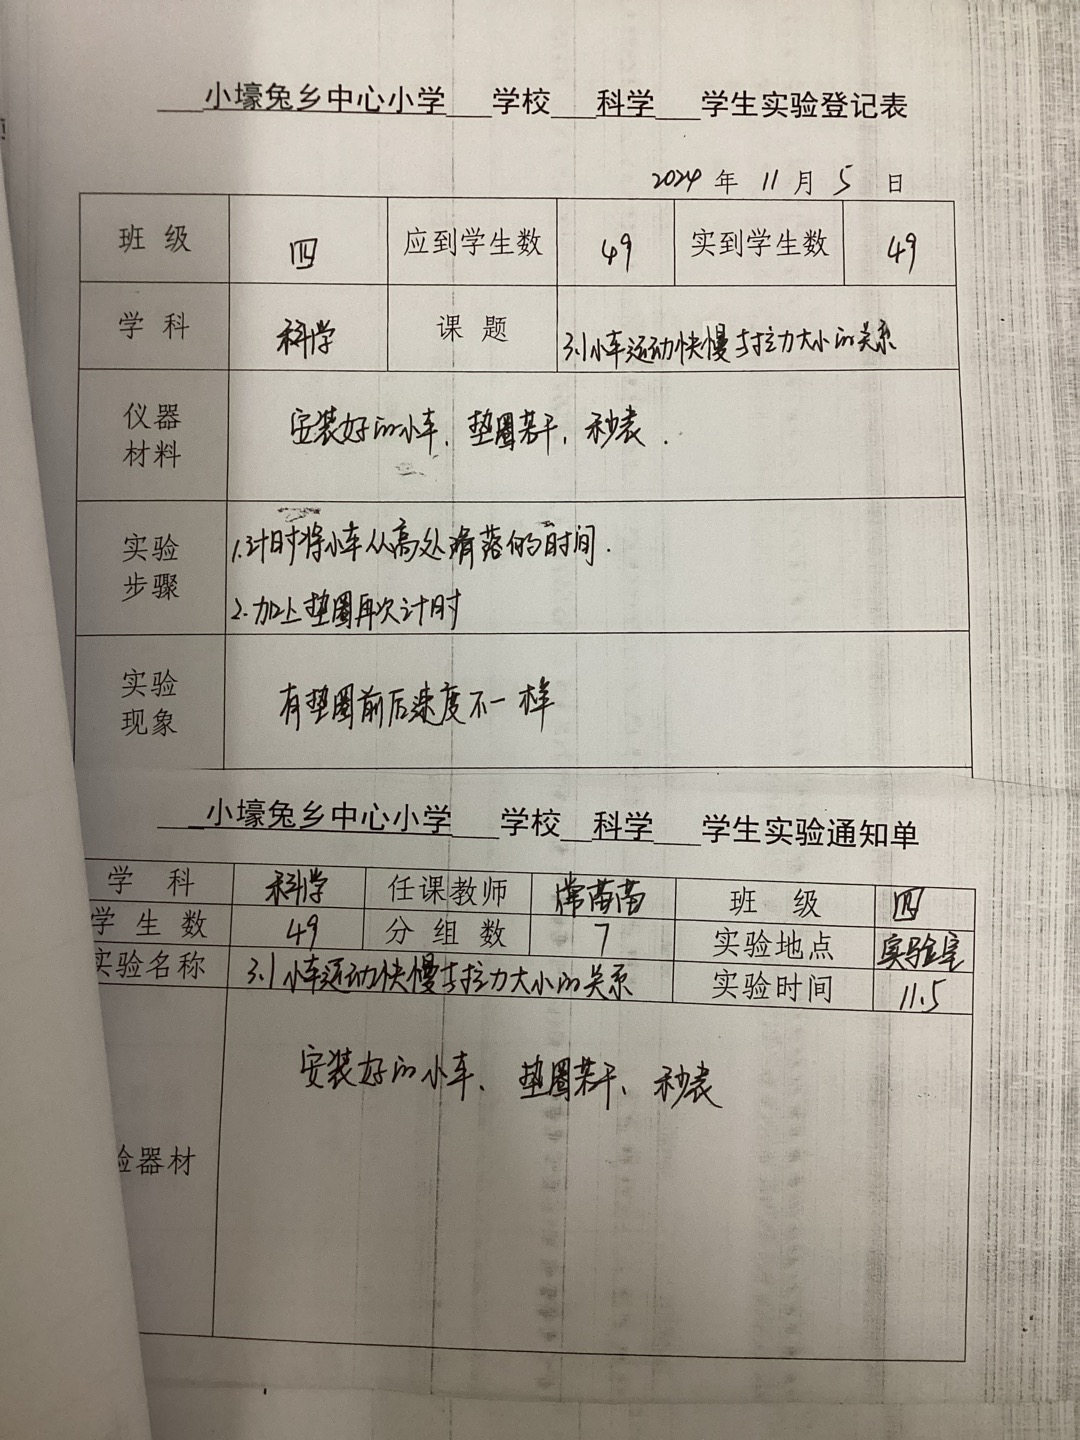 小壕兔乡中心小学 学校 科学 学生实验登记表
2024 年 11 月 5 日
班 级 四 应到学生数 49 实到学生数 49
学 科 科学 课 题 3.1小车运动快慢与拉力大小的关系
仪器
材料
安装好的小车、垫圈若干、秒表.
实验
步骤
1.计时将小车从高处滑落的时间.
2.加上垫圈再次计时
实验
现象
有垫圈前后速度不一样
小壕兔乡中心小学 学校 科学 学生实验通知单
学 科 科学 任课教师 常苗苗 班 级 四
学 生 数 49 分 组 数 7 实验地点 实验室
实验名称 3.1小车运动快慢与拉力大小的关系 实验时间 11.5
验器材
安装好的小车、垫圈若干、秒表